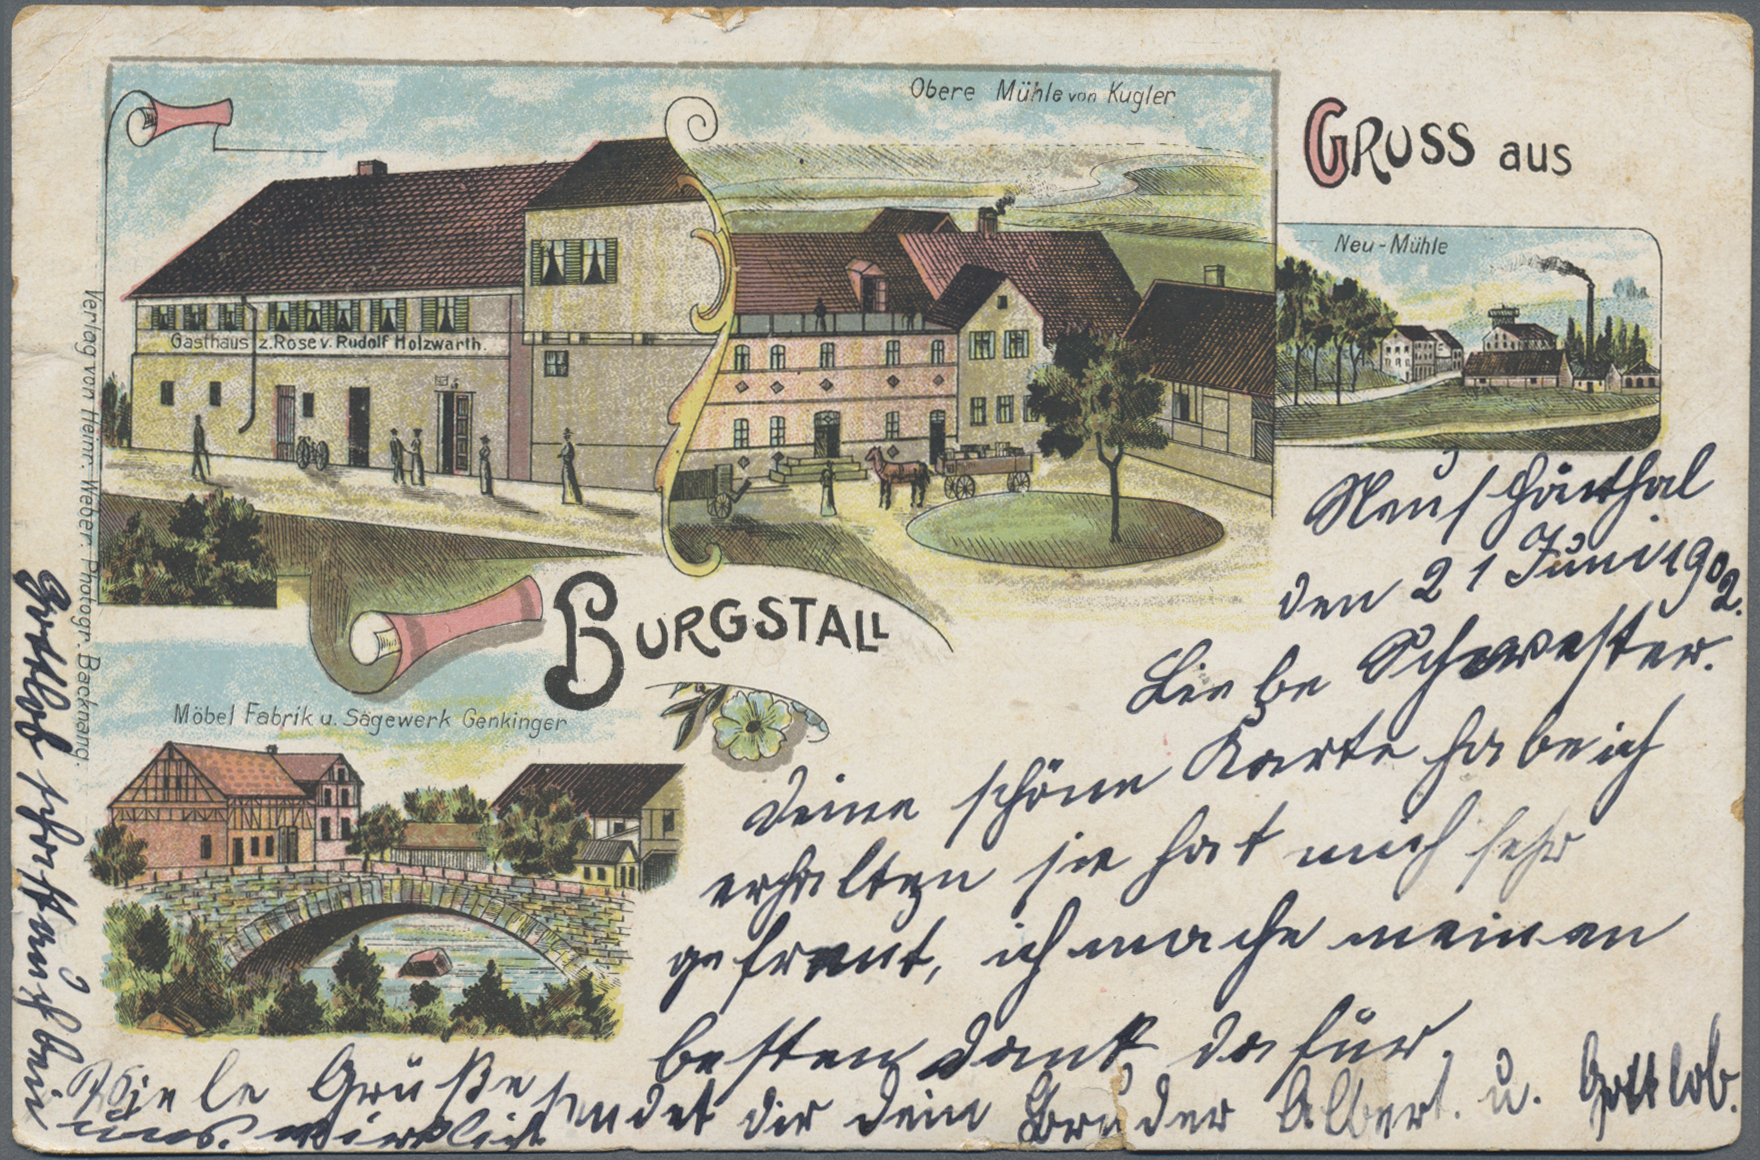 Obere Mühle von Kugler
GRUSS aus
Neu-Mühle
Gasthaus z. Rose v. Rudolf Holzwarth.
BURGSTALL
Möbel Fabrik u. Sägewerk Genkinger
Verlag von Heinr. Weber. Photogr. Backnang.
den 21 Juni 1902.
Liebe Schwester.
Deine schöne Karte habe ich
erhalten sie hat mich sehr
gefreut, ich mache meinen
besten Dank dafür.
Viele Grüße sendet dir dein Bruder Albert. u. Gottlob.
uns. wirklich
Gottlob schafft auch bei